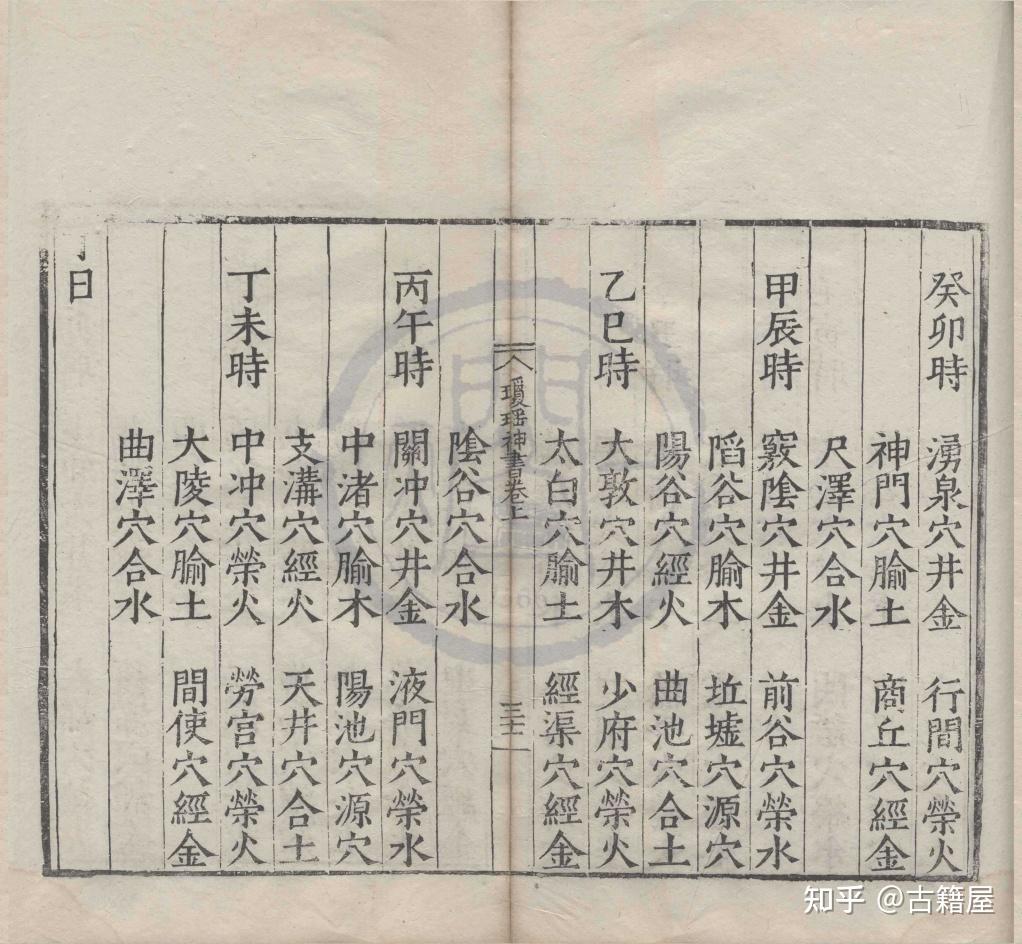 癸卯時 湧泉穴井金 行間穴滎火
神門穴腧土 商丘穴經金
尺澤穴合水
甲辰時 竅陰穴井金 前谷穴滎水
陷谷穴腧木 坵墟穴源穴
陽谷穴經火 曲池穴合土
乙巳時 大敦穴井木 少府穴滎火
太白穴腧土 經渠穴經金
瓊瑶神書卷上
陰谷穴合水
丙午時 關冲穴井金 液門穴滎水
中渚穴腧木 陽池穴源穴
支溝穴經火 天井穴合土
丁未時 中冲穴滎火 勞宫穴滎火
大陵穴腧土 間使穴經金
曲澤穴合水
日
知乎 @古籍屋